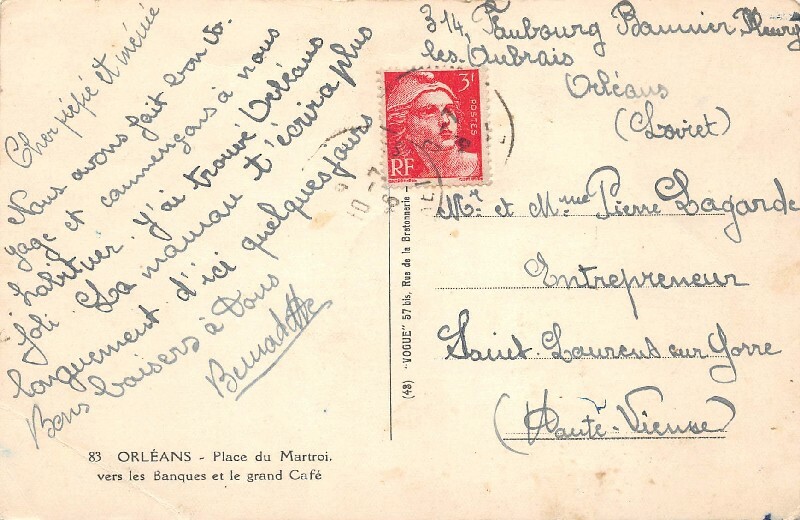 Cher pépé et mémé
Nous avons fait bon vo-
yage et commençons à nous
habituer. J'ai trouvé Orléans
joli. La maman t'écrira plus
longuement d'ici quelques jours
Bons baisers à Tous
Bernadette
83 ORLÉANS - Place du Martroi,
vers les Banques et le grand Café
(43) "VOGUE" 57 bis, Rue de la Bretonnerie -
314, Faubourg Bannier, Fleury
les-Aubrais
Orléans
(Loiret)
3F
POSTES
RF
Mr. et Mme Pierre Lagarde
Entrepreneur
Saint-Laurent sur Gorre
(Haute-Vienne)